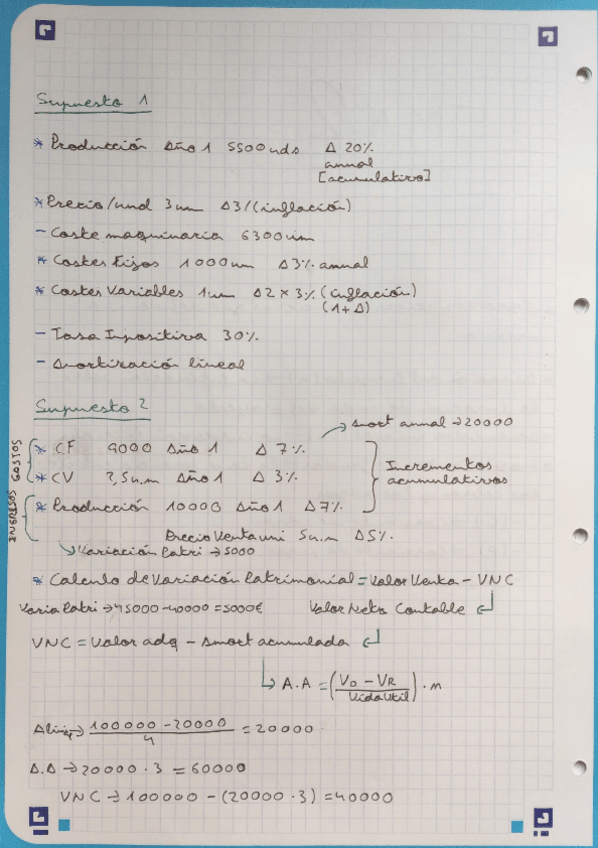 Supuesto 1
* Producción Año 1 5500 uds Δ 20%
annual
[acumulativo]
* Precio/und 3um Δ3/(inflación)
- Coste maquinaria 6300um
* Costes Fijos 1000um Δ3% annual
* Costes Variables 1um Δ2 × 3% (inflación)
(1+Δ)
- Tasa Inpositiva 30%
- Amortización lineal
Supuesto 2
→ Amort annual → 20000
GASTOS
* CF 9000 Año 1 Δ 7%
* CV 2,5u.m Año 1 Δ 3%
Incrementos
acumulativos
INGRESOS
* Producción 10000 Año 1 Δ7%
Precio Venta uni 5u.m Δ5%
↳ Variación Patri → 5000
* Calculo de Variación Patrimonial = Valor Venta - VNC
Varia Patri → 45000 - 40000 = 5000€ Valor Neto Contable ↲
VNC = Valor adq - Amort acumulada ↲
↳ A.A = (Vo - VR / Vida Util) · m
100000 - 20000 / 4 = 20000
A.A → 20000 · 3 = 60000
VNC → 100000 - (20000 · 3) = 40000